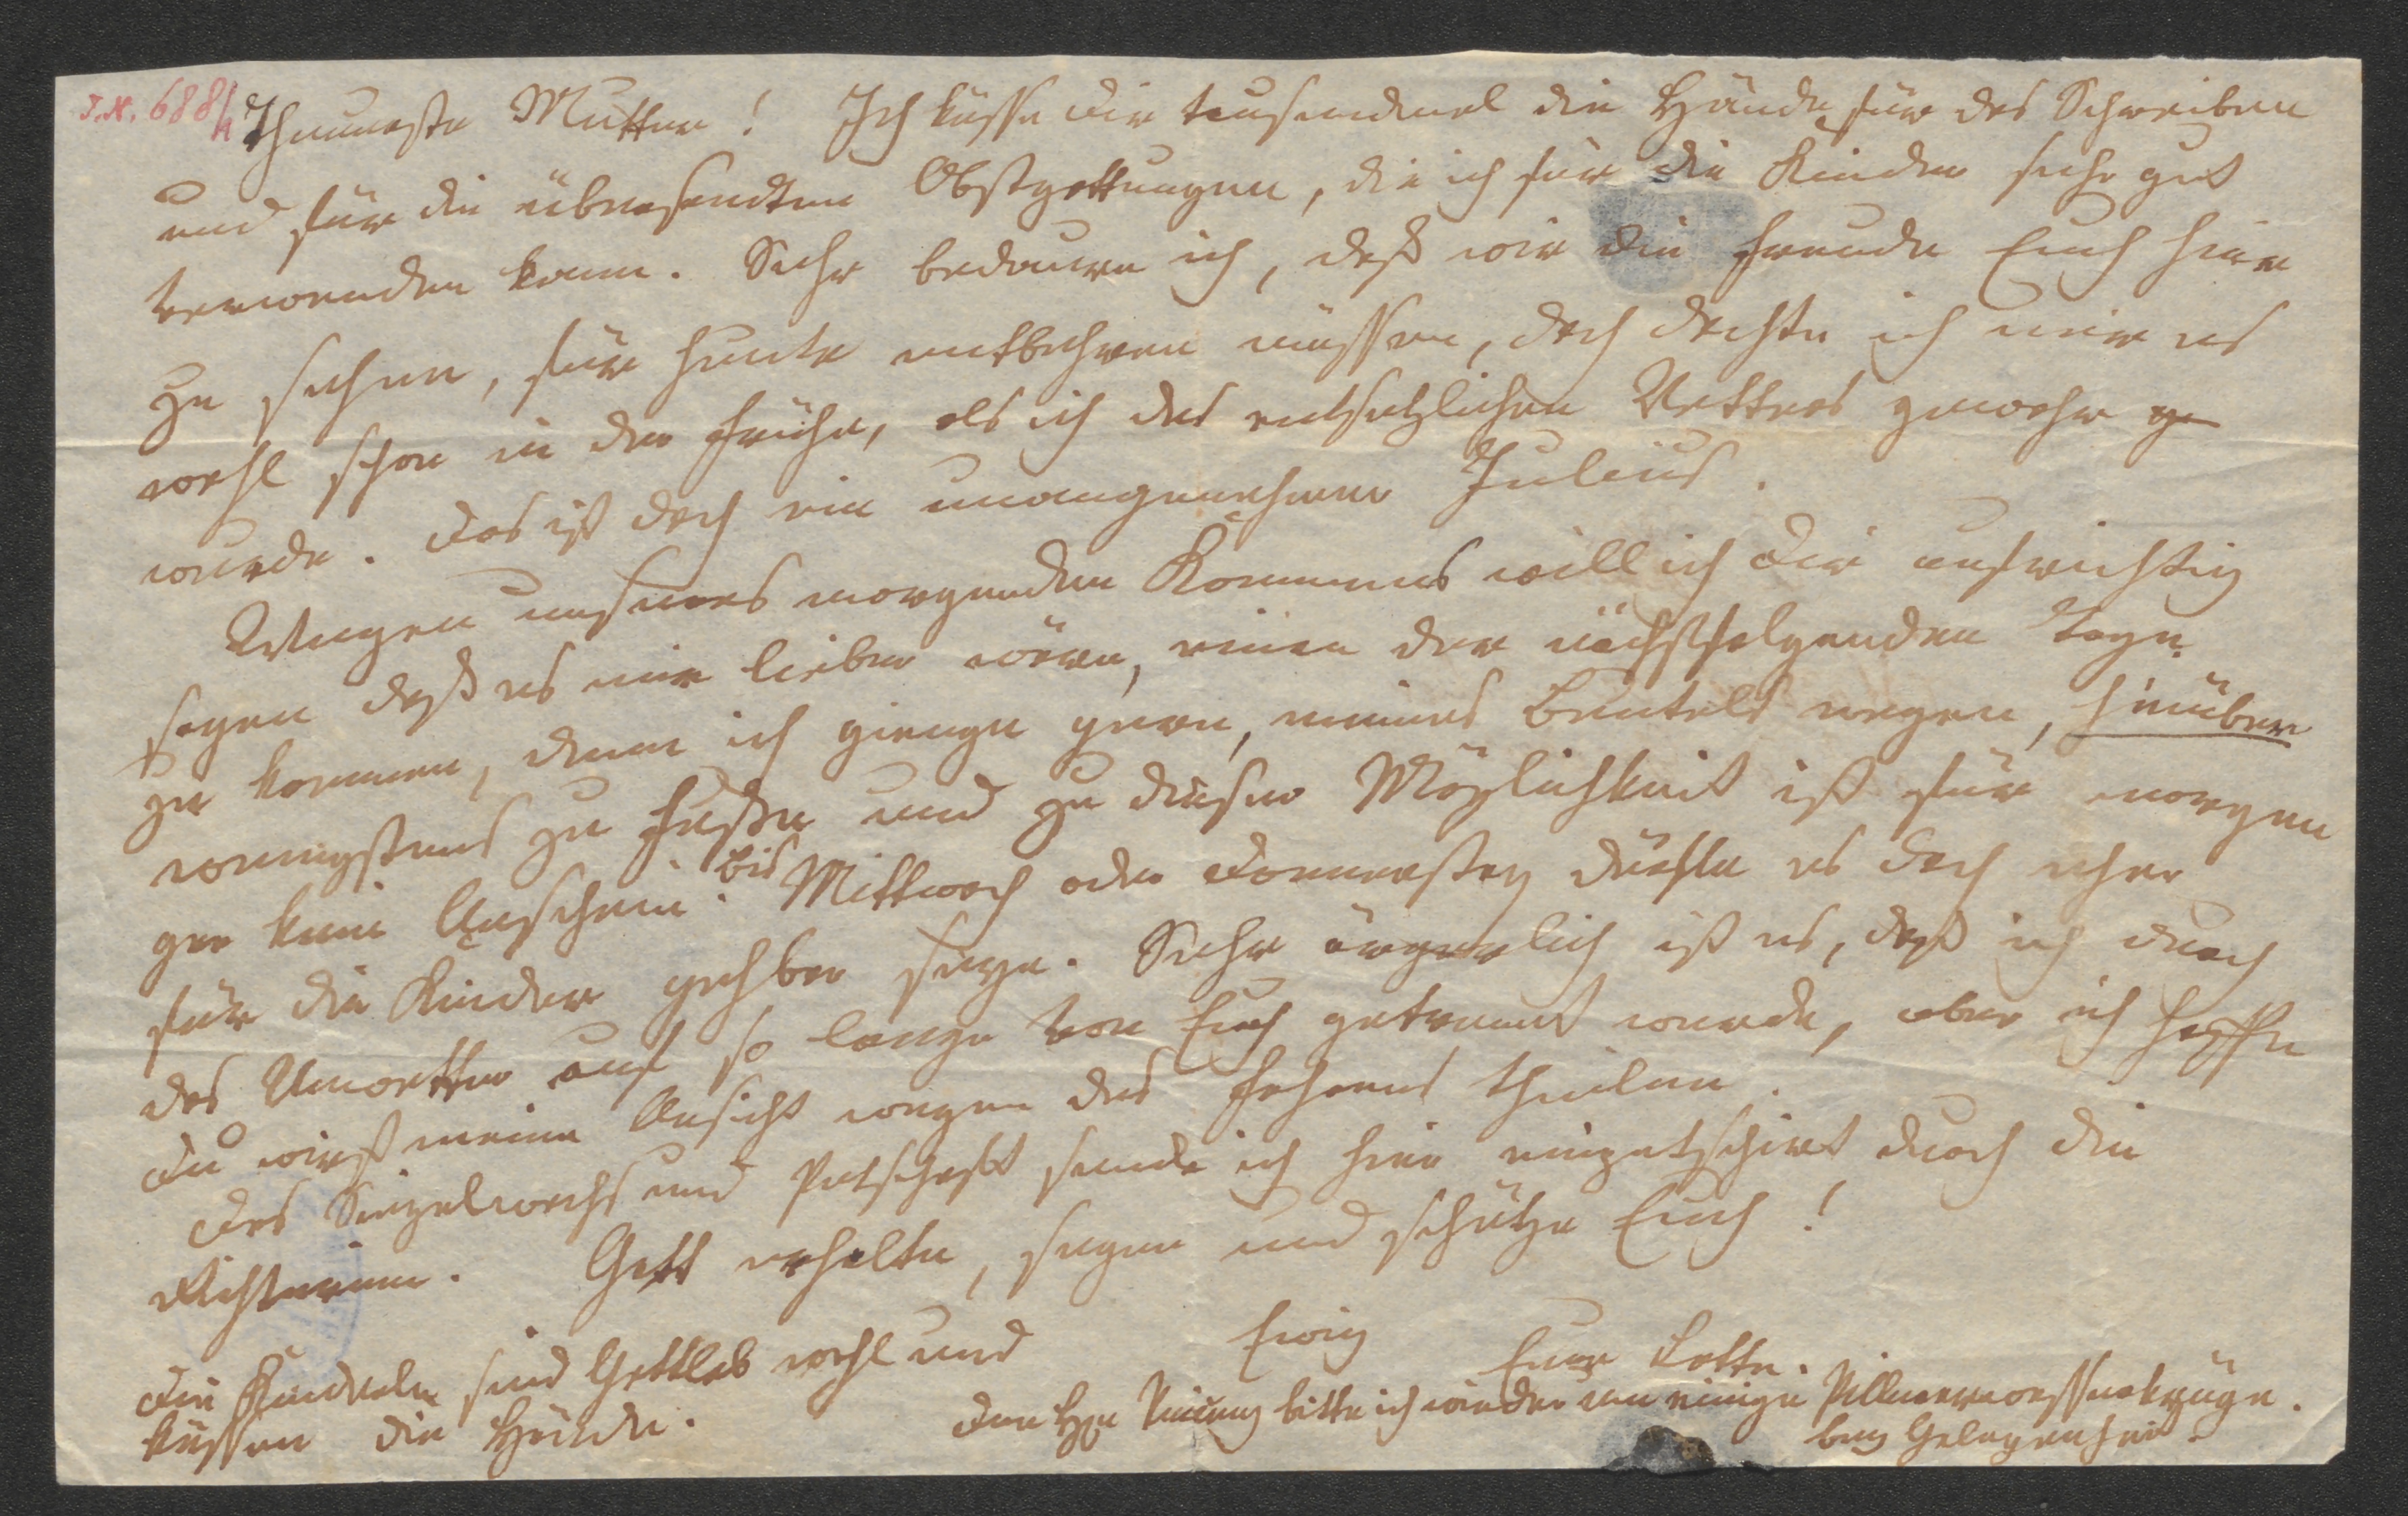 J.N. 688/4
Theuerste Mutter! Ich küsse dir tausendmal die Hände für das Schreiben
und für die übersendten Obstgattungen, die ich für die Kinder sehr gut
verwenden kann. Sehr bedaure ich, daß wir die Freude Euch hier
zu sehen, für heute entbehren müssen, doch dachte ich mir es
wohl schon in der Frühe, als ich des entsetzlichen Wetters gewahr ge
wurde. Das ist doch ein unangenehmer Julius.
Wegen unseres morgenden Kommens will ich dir aufrichtig
sagen daß es mir lieber wäre, einen der nächstfolgenden Tage
zu kommen, denn ich gienge gern, meines Beutels wegen, hinüber
wenigstens zu Fuße und zu dieser Möglichkeit ist für morgen
gar kein Anschein. bis Mittwoch oder Donnerstag dürfte es doch eher
für die Kinder gehbar seyn. Sehr ärgerlich ist es, daß ich durch
das Unwetter auf so lange von Euch getrennt wurde, aber ich hoffe
Du wirst meine Ansicht wegen des Fahrens theilen.
Das Sigelwachs und Petschaft sende ich hier eingetschirt durch die
Richterinn. Gott erhalte, segne und schütze Euch!
Ewig
Eure Lotte.
Die Kinderln sind Gottlob wohl und
küssen die Hände.
Den H Vincenz bitte ich wieder um einige Pillnerwasserkrüge.
bey Gelegenheit.